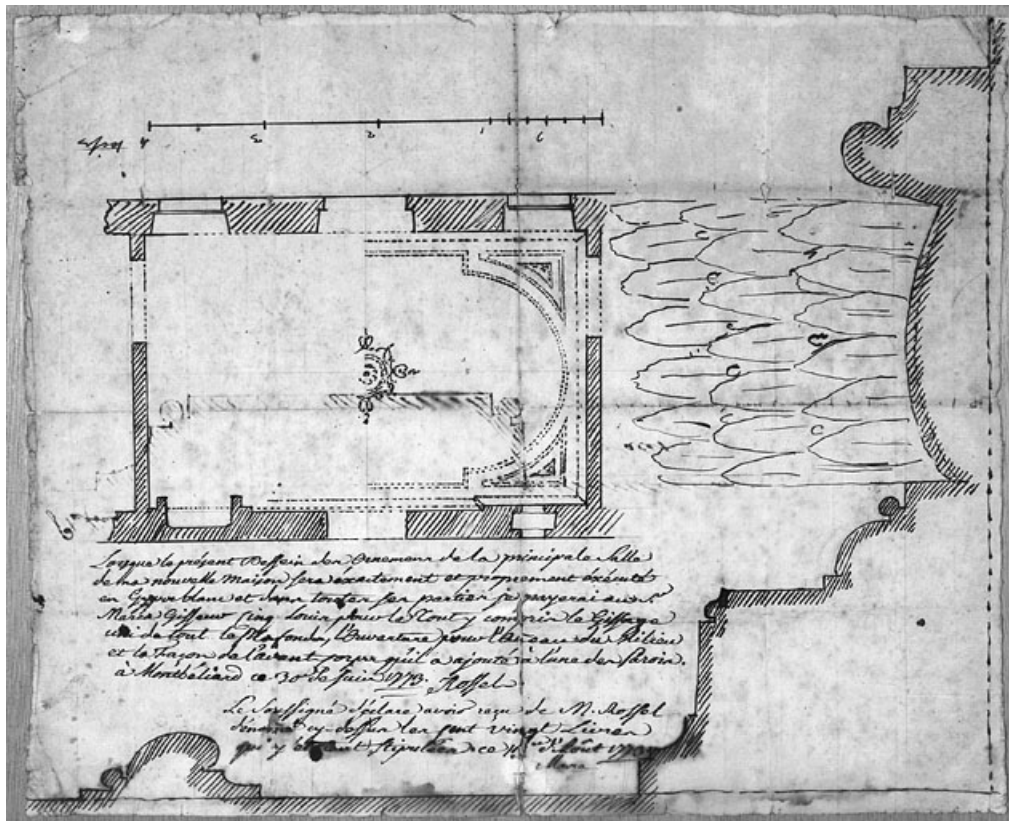 Lorsque le présent Dessein des Ornemens de la principale Salle
de ma nouvelle Maison sera exactement et proprement éxécuté
en Gypse blanc et dans toutes ses parties je payerai au Sr
Marca Gisseur Cinq Louis pour le Tout y compris le Gissage
uni de tout le Plafond, l'Ouverture pour l'Anneau du Milieu
et la Façon de l'avant-corps qu'il a ajouté à l'une des Parois.
à Montbéliard ce 30e de Juin 1773. Rossel
Le Soussigné déclare avoir reçu de M. Rossel
dénommé cy-dessus les cent vingt Livres
qui y stipulées ce d'Août 1773
Marca
4 3 2 1